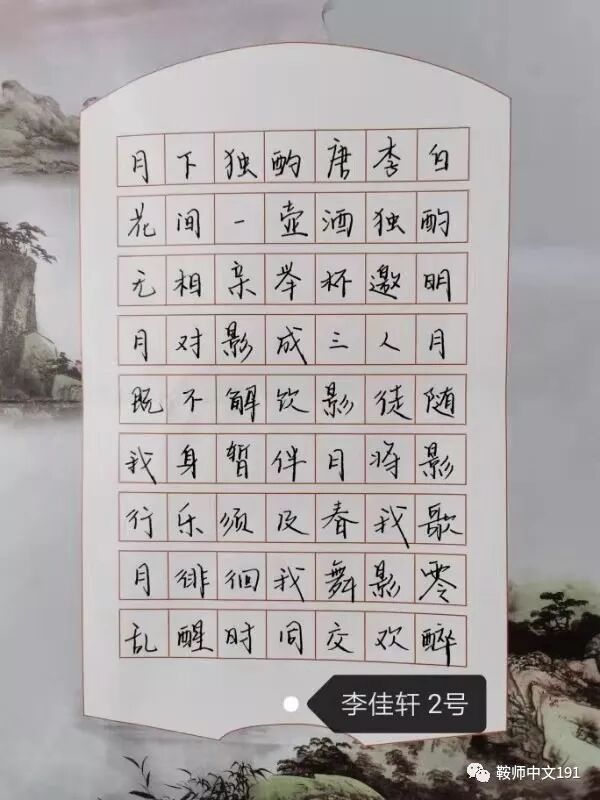 月下独酌唐李白
花间一壶酒独酌
无相亲举杯邀明
月对影成三人月
既不解饮影徒随
我身暂伴月将影
行乐须及春我歌
月徘徊我舞影零
乱醒时同交欢醉
李佳轩 2号
鞍师中文191